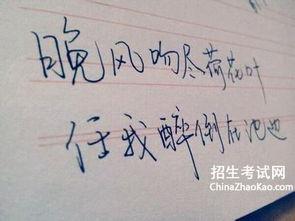 晚风吻尽荷花叶
任我醉倒在池边
招生考试网
ChinaZhaoKao.com